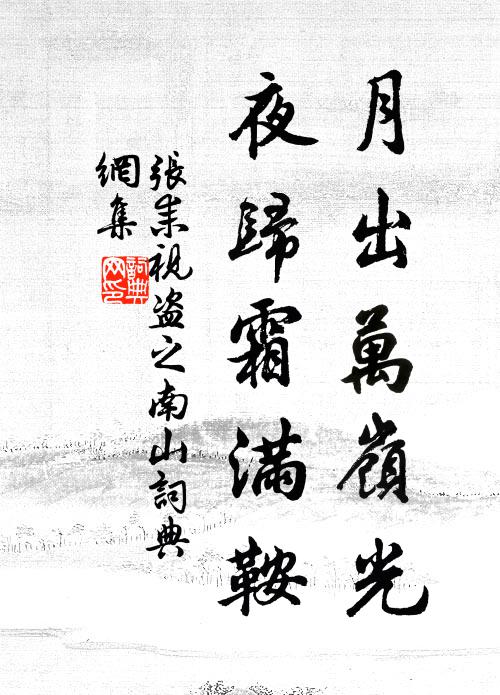 月出萬嶺光
夜歸霜滿鞍
張耒視盗之南山詞典
網集
詞典
网印